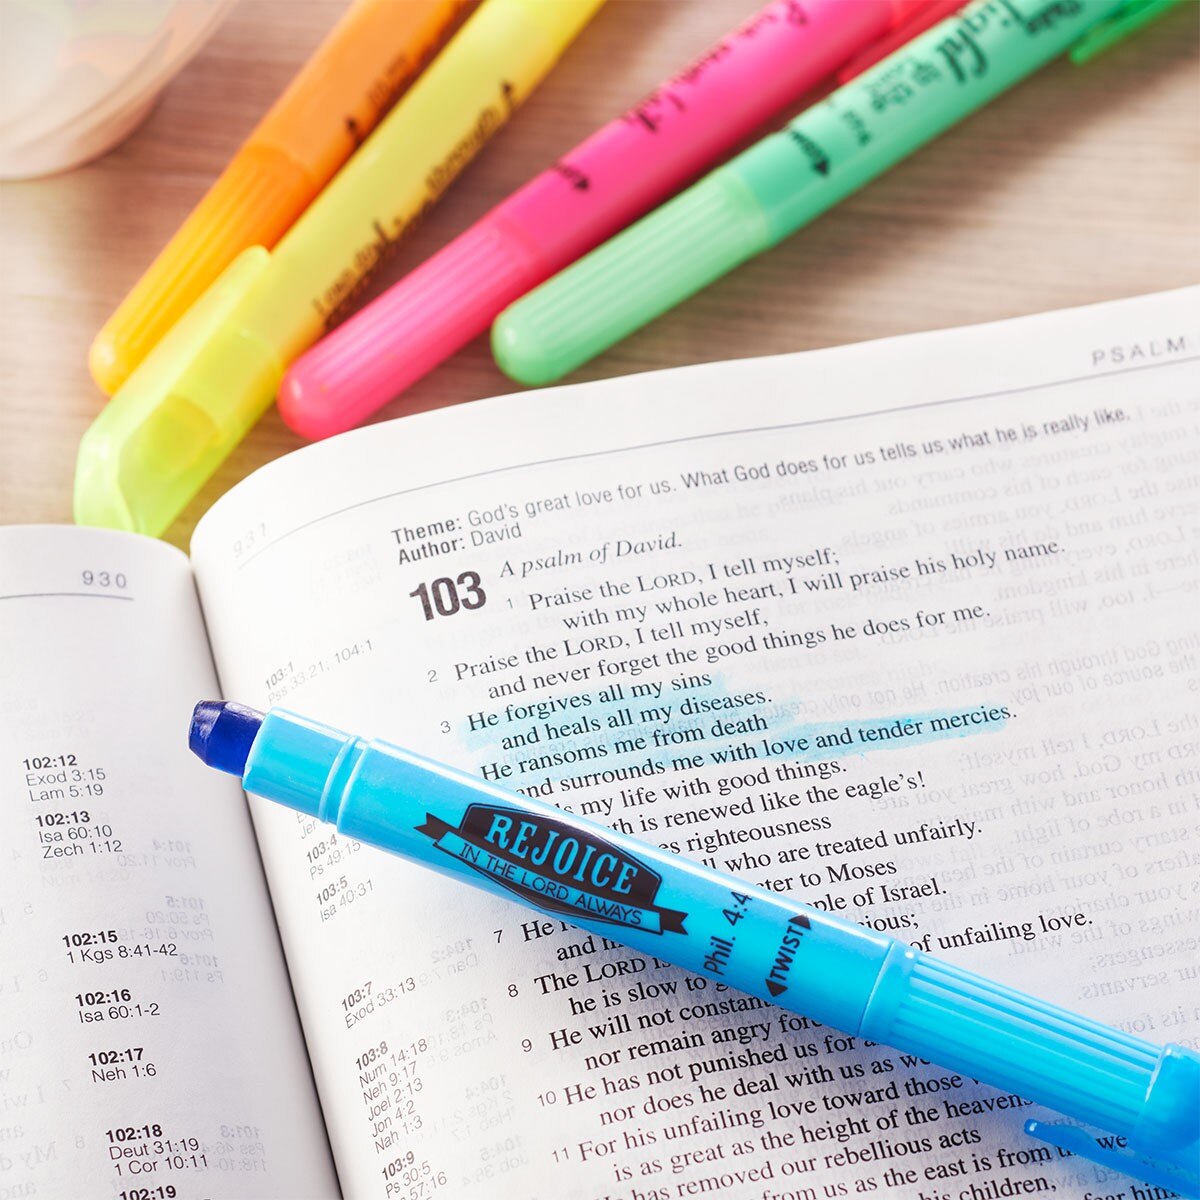 PSALM
931
Theme: God's great love for us. What God does for us tells us what he is really like.
Author: David
103
A psalm of David.
1 Praise the LORD, I tell myself;
with my whole heart, I will praise his holy name.
2 Praise the LORD, I tell myself,
and never forget the good things he does for me.
3 He forgives all my sins
and heals all my diseases.
He ransoms me from death
and surrounds me with love and tender mercies.
my life with good things.
is renewed like the eagle's!
righteousness
who are treated unfairly.
to Moses
of Israel.
7 He
and
of unfailing love.
8 The LORD is
he is slow to
9 He will not
nor remain angry
10 He has not punished us for
nor does he deal with us as we
11 For his unfailing love toward those
is as great as the height of the heavens
has removed our rebellious acts
from us as the east is from
we
his children,
him
103:1
Pss 33:21; 104:1
103:4
Ps 49:15
103:5
Isa 40:31
103:7
Exod 33:13
103:8
Num 14:18
Neh 9:17
Joel 2:13
Jon 4:2
Nah 1:3
103:9
Ps 30:5
57:16
930
102:12
Exod 3:15
Lam 5:19
102:13
Isa 60:10
Zech 1:12
102:15
1 Kgs 8:41-42
102:16
Isa 60:1-2
102:17
Neh 1:6
102:18
Deut 31:19
1 Cor 10:11
102:19
REJOICE
IN THE LORD ALWAYS
Phil. 4:4
TWIST